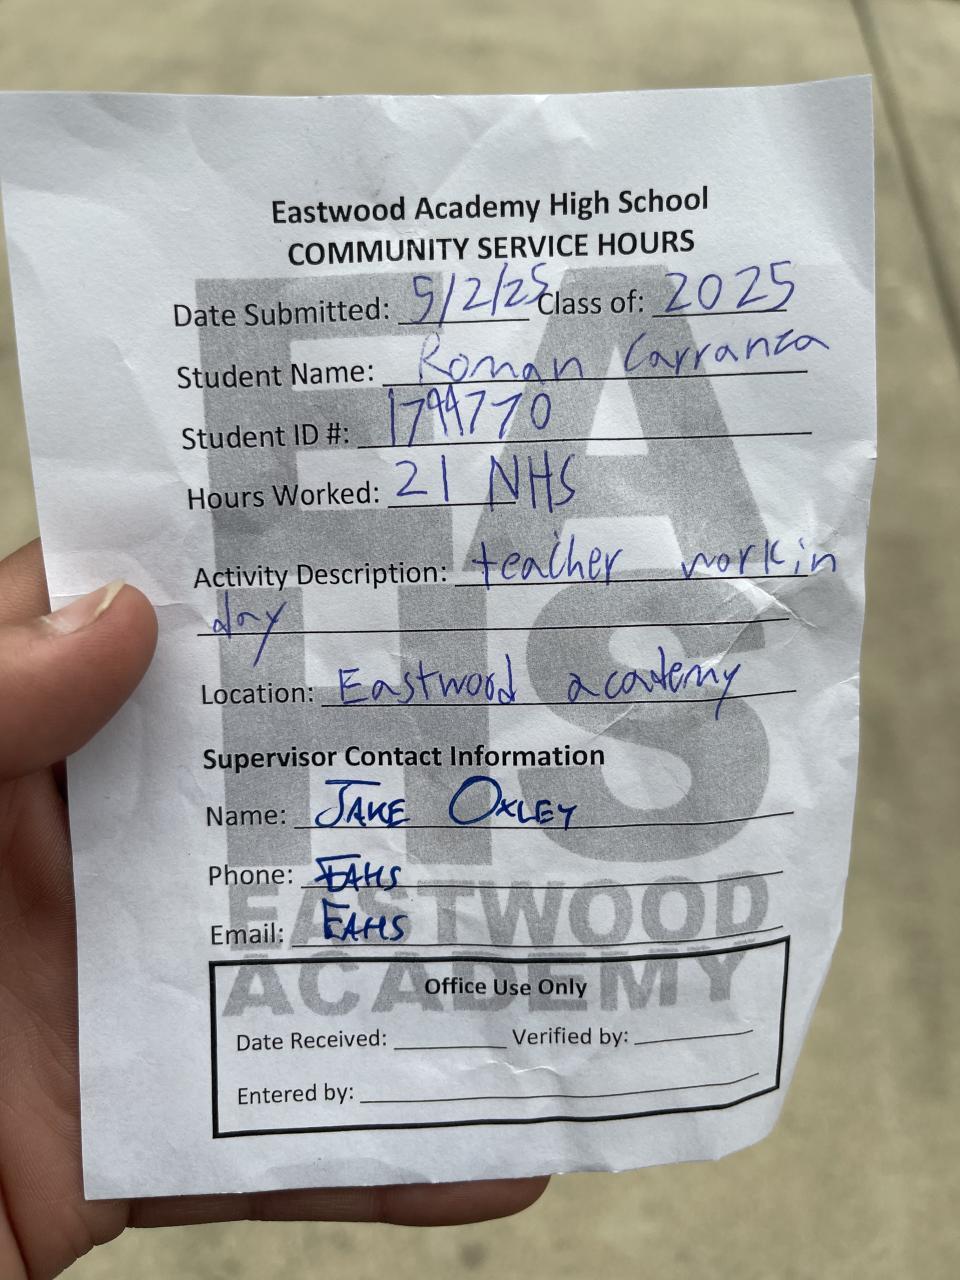 Eastwood Academy High School
COMMUNITY SERVICE HOURS
Date Submitted: 5/2/25 Class of: 2025
Student Name: Roman Carranza
Student ID #: 1799770
Hours Worked: 21 NHS
Activity Description: teaćher workin
day
Location: Eastwood academy
Supervisor Contact Information
Name: JAKE OXLEY
Phone: EAHS
Email: EAHS
Office Use Only
Date Received: Verified by:
Entered by:
EA
HS
EASTWOOD
ACADEMY